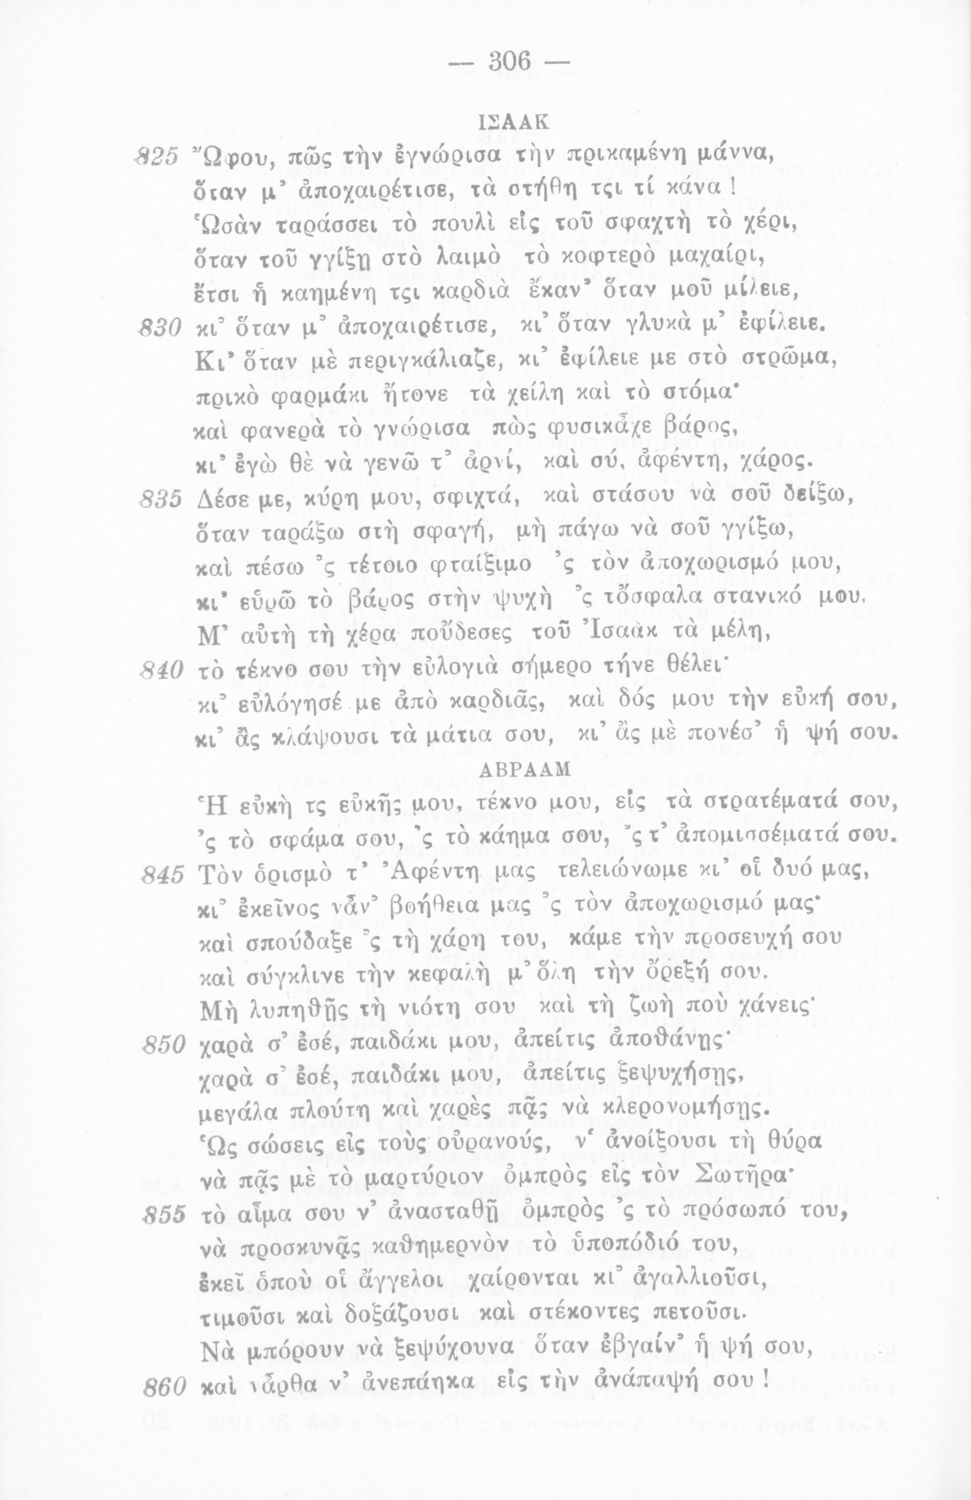 — 306 —
ΙΣΑΑΚ
825 Ὤφου, πῶς τὴν ἐγνώρισα τὴν πρικαμένη μάννα,
ὅταν μ’ ἀποχαιρέτισε, τὰ στήθη τςι τί κάνα !
Ὡσὰν ταράσσει τὸ πουλὶ εἰς τοῦ σφαχτὴ τὸ χέρι,
ὅταν τοῦ γγίξῃ στὸ λαιμὸ τὸ κοφτερὸ μαχαίρι,
ἔτσι ἡ καημένη τςι καρδιὰ ἔκαν’ ὅταν μοῦ μίλειε,
830 κι’ ὅταν μ’ ἀποχαιρέτισε, κι’ ὅταν γλυκὰ μ’ ἐφίλειε.
Κι’ ὅταν μὲ περιγκάλιαζε, κι’ ἐφίλειε με στὸ στρῶμα,
πρικὸ φαρμάκι ἤτονε τὰ χείλη καὶ τὸ στόμα·
καὶ φανερὰ τὸ γνώρισα πὼς φυσικᾶχε βάρος,
κι’ ἐγὼ θὲ νὰ γενῶ τ’ ἀρνί, καὶ σύ, ἀφέντη, χάρος.
835 Δέσε με, κύρη μου, σφιχτά, καὶ στάσου νὰ σοῦ δείξω,
ὅταν ταράξω στὴ σφαγή, μὴ πάγω νὰ σοῦ γγίξω,
καὶ πέσω ’ς τέτοιο φταίξιμο ’ς τὸν ἀποχωρισμό μου,
κι’ εὑρῶ τὸ βάρος στὴν ψυχὴ ’ς τὄσφαλα στανικό μου.
Μ’ αὐτὴ τὴ χέρα ποὔδεσες τοῦ Ἰσαὰκ τὰ μέλη,
840 τὸ τέκνο σου τὴν εὐλογιὰ σήμερο τήνε θέλει·
κι’ εὐλόγησέ με ἀπὸ καρδιᾶς, καὶ δός μου τὴν εὐκή σου,
κι’ ἂς κλάψουσι τὰ μάτια σου, κι’ ἂς μὲ πονέσ’ ἡ ψή σου.
ΑΒΡΑΑΜ
Ἡ εὐκὴ τς εὐκῆς μου, τέκνο μου, εἰς τὰ στρατέματά σου,
’ς τὸ σφάμα σου, ’ς τὸ κάημα σου, ’ς τ’ ἀπομισσέματά σου.
845 Τὸν ὁρισμὸ τ’ Ἀφέντη μας τελειώνωμε κι’ οἱ δυό μας,
κι’ ἐκεῖνος νἆν’ βοήθεια μας ’ς τὸν ἀποχωρισμό μας·
καὶ σπούδαξε ’ς τὴ χάρη του, κάμε τὴν προσευχή σου
καὶ σύγκλινε τὴν κεφαλὴ μ’ ὅλη τὴν ὄρεξή σου.
Μὴ λυπηθῇς τὴ νιότη σου καὶ τὴ ζωὴ ποὺ χάνεις·
850 χαρὰ σ’ ἐσέ, παιδάκι μου, ἀπείτις ἀποθάνῃς·
χαρὰ σ’ ἐσέ, παιδάκι μου, ἀπείτις ξεψυχήσῃς,
μεγάλα πλούτη καὶ χαρὲς πᾷς νὰ κλερονομήσῃς.
Ὡς σώσεις εἰς τοὺς οὐρανούς, ν’ ἀνοίξουσι τὴ θύρα
νὰ πᾷς μὲ τὸ μαρτύριον ὀμπρὸς εἰς τὸν Σωτῆρα·
855 τὸ αἷμα σου ν’ ἀνασταθῇ ὀμπρὸς ’ς τὸ πρόσωπό του,
νὰ προσκυνᾷς καθημερνὸν τὸ ὑποπόδιό του,
ἐκεῖ ὁποὺ οἱ ἄγγελοι χαίρονται κι’ ἀγαλλιοῦσι,
τιμοῦσι καὶ δοξάζουσι καὶ στέκοντες πετοῦσι.
Νὰ μπόρουν νὰ ξεψύχουνα ὅταν ἐβγαίν’ ἡ ψή σου,
860 καὶ νἆρθα ν’ ἀνεπάηκα εἰς τὴν ἀνάπαψή σου !